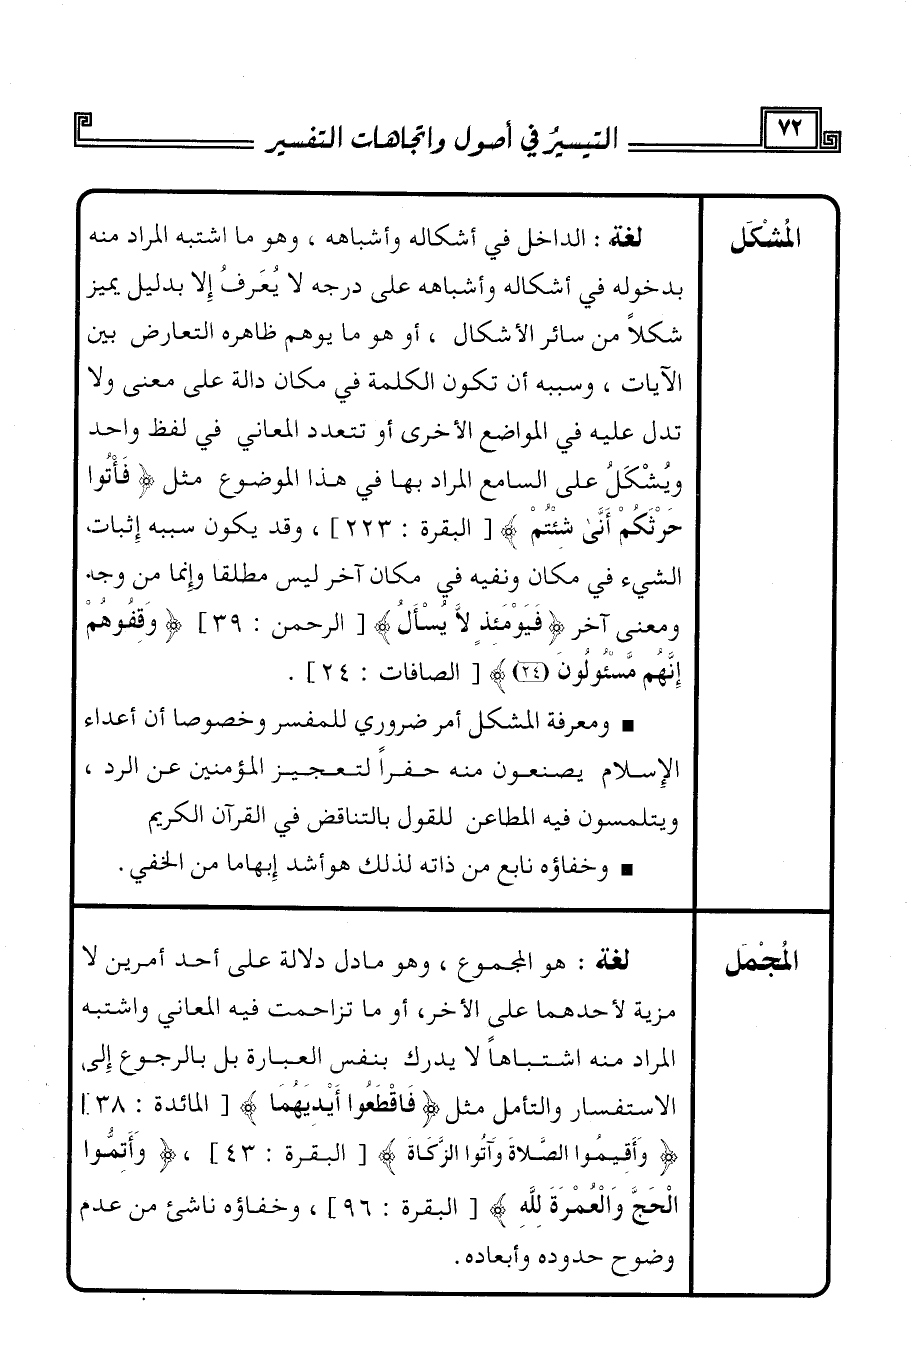 ٧٢
التيسيرُ في أصول واتجاهات التفسير
المُشْكَل
لغة : الداخل في أشكاله وأشباهه ، وهو ما اشتبه المراد منه
بدخوله في أشكاله وأشباهه على درجه لا يُعَرفُ إلا بدليل يميز
شكلاً من سائر الأشكال ، أو هو ما يوهم ظاهره التعارض بين
الآيات ، وسببه أن تكون الكلمة في مكان دالة على معنى ولا
تدل عليه في المواضع الأخرى أو تتعدد المعاني في لفظ واحد
ويُشْكَلُ على السامع المراد بها في هذا الموضوع مثل ﴿ فَأْتُوا
حَرْثَكُمْ أَنَّىٰ شئْتُمْ ﴾ [ البقرة : ٢٢٣ ] ، وقد يكون سببه إثبات
الشيء في مكان ونفيه في مكان آخر ليس مطلقا وإنما من وجه
ومعنى آخر ﴿ فَيَوْمَئذ لاَّ يُسْأَلُ ﴾ [ الرحمن : ٣٩ ] ﴿ وَقفُوهُمْ
إنَّهُم مَّسْئُولُونَ (٢٤) ﴾ [ الصافات : ٢٤ ] .
■ ومعرفة المشكل أمر ضروري للمفسر وخصوصا أن أعداء
الإسلام يصنعون منه حفراً لتعجيز المؤمنين عن الرد ،
ويتلمسون فيه المطاعن للقول بالتناقض في القرآن الكريم
■ وخفاؤه نابع من ذاته لذلك هوأشد إبهاما من الخفي .
المُجْمَل
لغة : هو المجموع ، وهو مادل دلالة على أحد أمرين لا
مزية لأحدهما على الأخر، أو ما تزاحمت فيه المعاني واشتبه
المراد منه اشتباهاً لا يدرك بنفس العبارة بل بالرجوع إلى
الاستفسار والتأمل مثل ﴿ فَاقْطَعُوا أَيْديَهُمَا ﴾ [ المائدة : ٣٨ ]
﴿ وَأَقيمُوا الصَّلاةَ وَآتُوا الزَّكَاةَ ﴾ [ البقرة : ٤٣ ] ، ﴿ وَأَتمُّوا
الْحَجَّ وَالْعُمْرَةَ للَّه ﴾ [ البقرة : ٩٦ ] ، وخفاؤه ناشئ من عدم
وضوح حدوده وأبعاده .